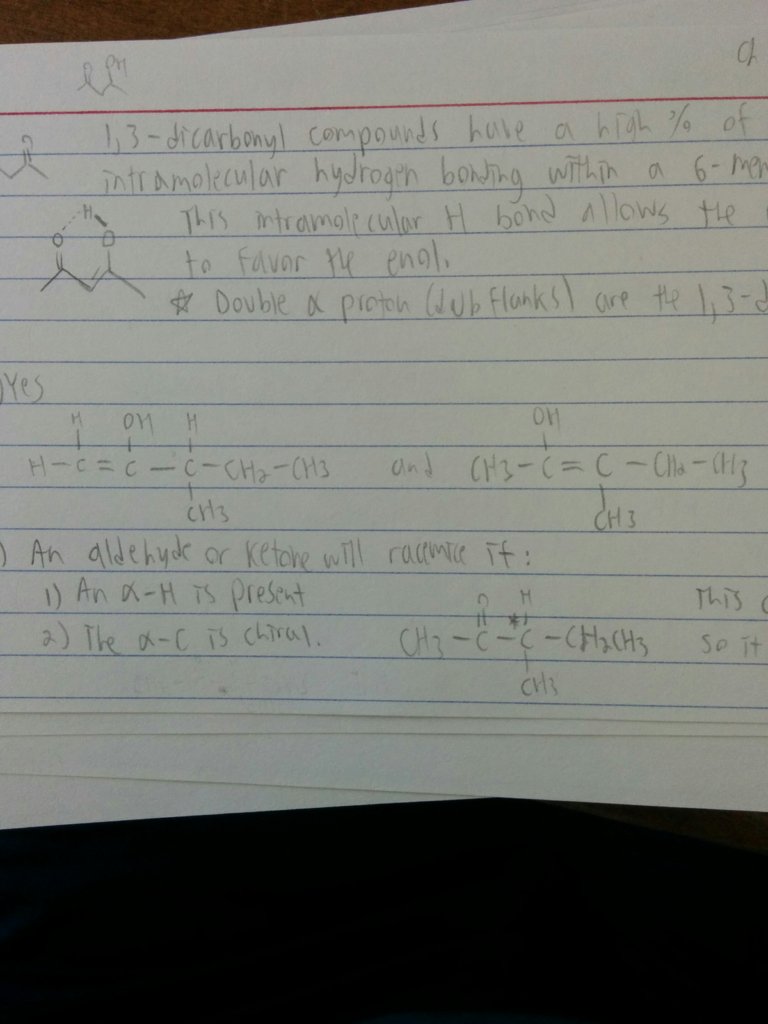 OH
Ch
O
1,3-dicarbonyl compounds have a high % of
intramolecular hydrogen bonding within a 6-mem
H
O O
This intramolecular H bond allows the
to favor the enol.
☆ Double α proton (dub flanks) are the 1,3-d
)Yes
H OH H
H-C=C-C-CH2-CH3 and
CH3
OH
CH3-C=C-CH2-CH3
CH3
) An aldehyde or ketone will racemice if:
1) An α-H is present
2) The α-C is chiral.
O H
CH3-C-C*-CH2CH3
CH3
This
so it